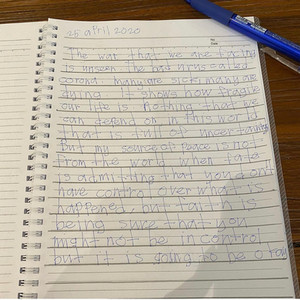 25 april 2020
The war that we are facing
is unseen. The bad virus called
corona. Many are sick, many are
dying. It shows how fragile
our life is. Nothing that we
can depend on in this world
That is full of uncertainty
But my source of peace is not
From the world. When fate
is admitting that you don't
have control over what is
happened, but faith is
being sure that you
might not be in control
but it is going to be okay